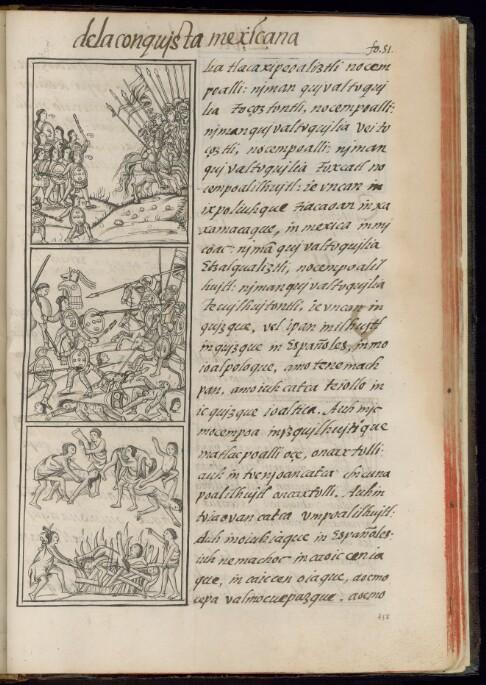 de la conquista mexicana
fo. 51.
lia tlacaxipeoaliztli no cem
poalli: njman quj valtoquj
lia toçoztontli, no cempoalli:
njman quj valtoquilia vei to
çoztli, no cempoalli: njman
quj valtoquilia tuxcatl no
cempoalilhujtl: ie vncan in
ixpoliuhque
in xa
in mexica in mj
coac: njmã quj valtoquilia
Etzalqualiztli, no cempoalil
hujtl: njman quj valtoquilia
Tecujlhujtontli, ie vncan in
qujzque, vel ipan in ilhujtl
in qujzque in Españoles, in mo
ioalpoloque, amo tenemach
pan, amo iuh catca teiollo in
ic qujzque ioaltica. Auh in jc
mocempoa
matlacpoalli oce, onaxtolli:
auh in
catca chicuna
poalilhujtl onaxtolli. Auh in
catca vmpoalilhujtl:
Auh in
in Españoles:
iuh nemachoc in ca oic cen ia
que, in ca ic cen oiaque, aocmo
cepa valmocuepazque. aocmo